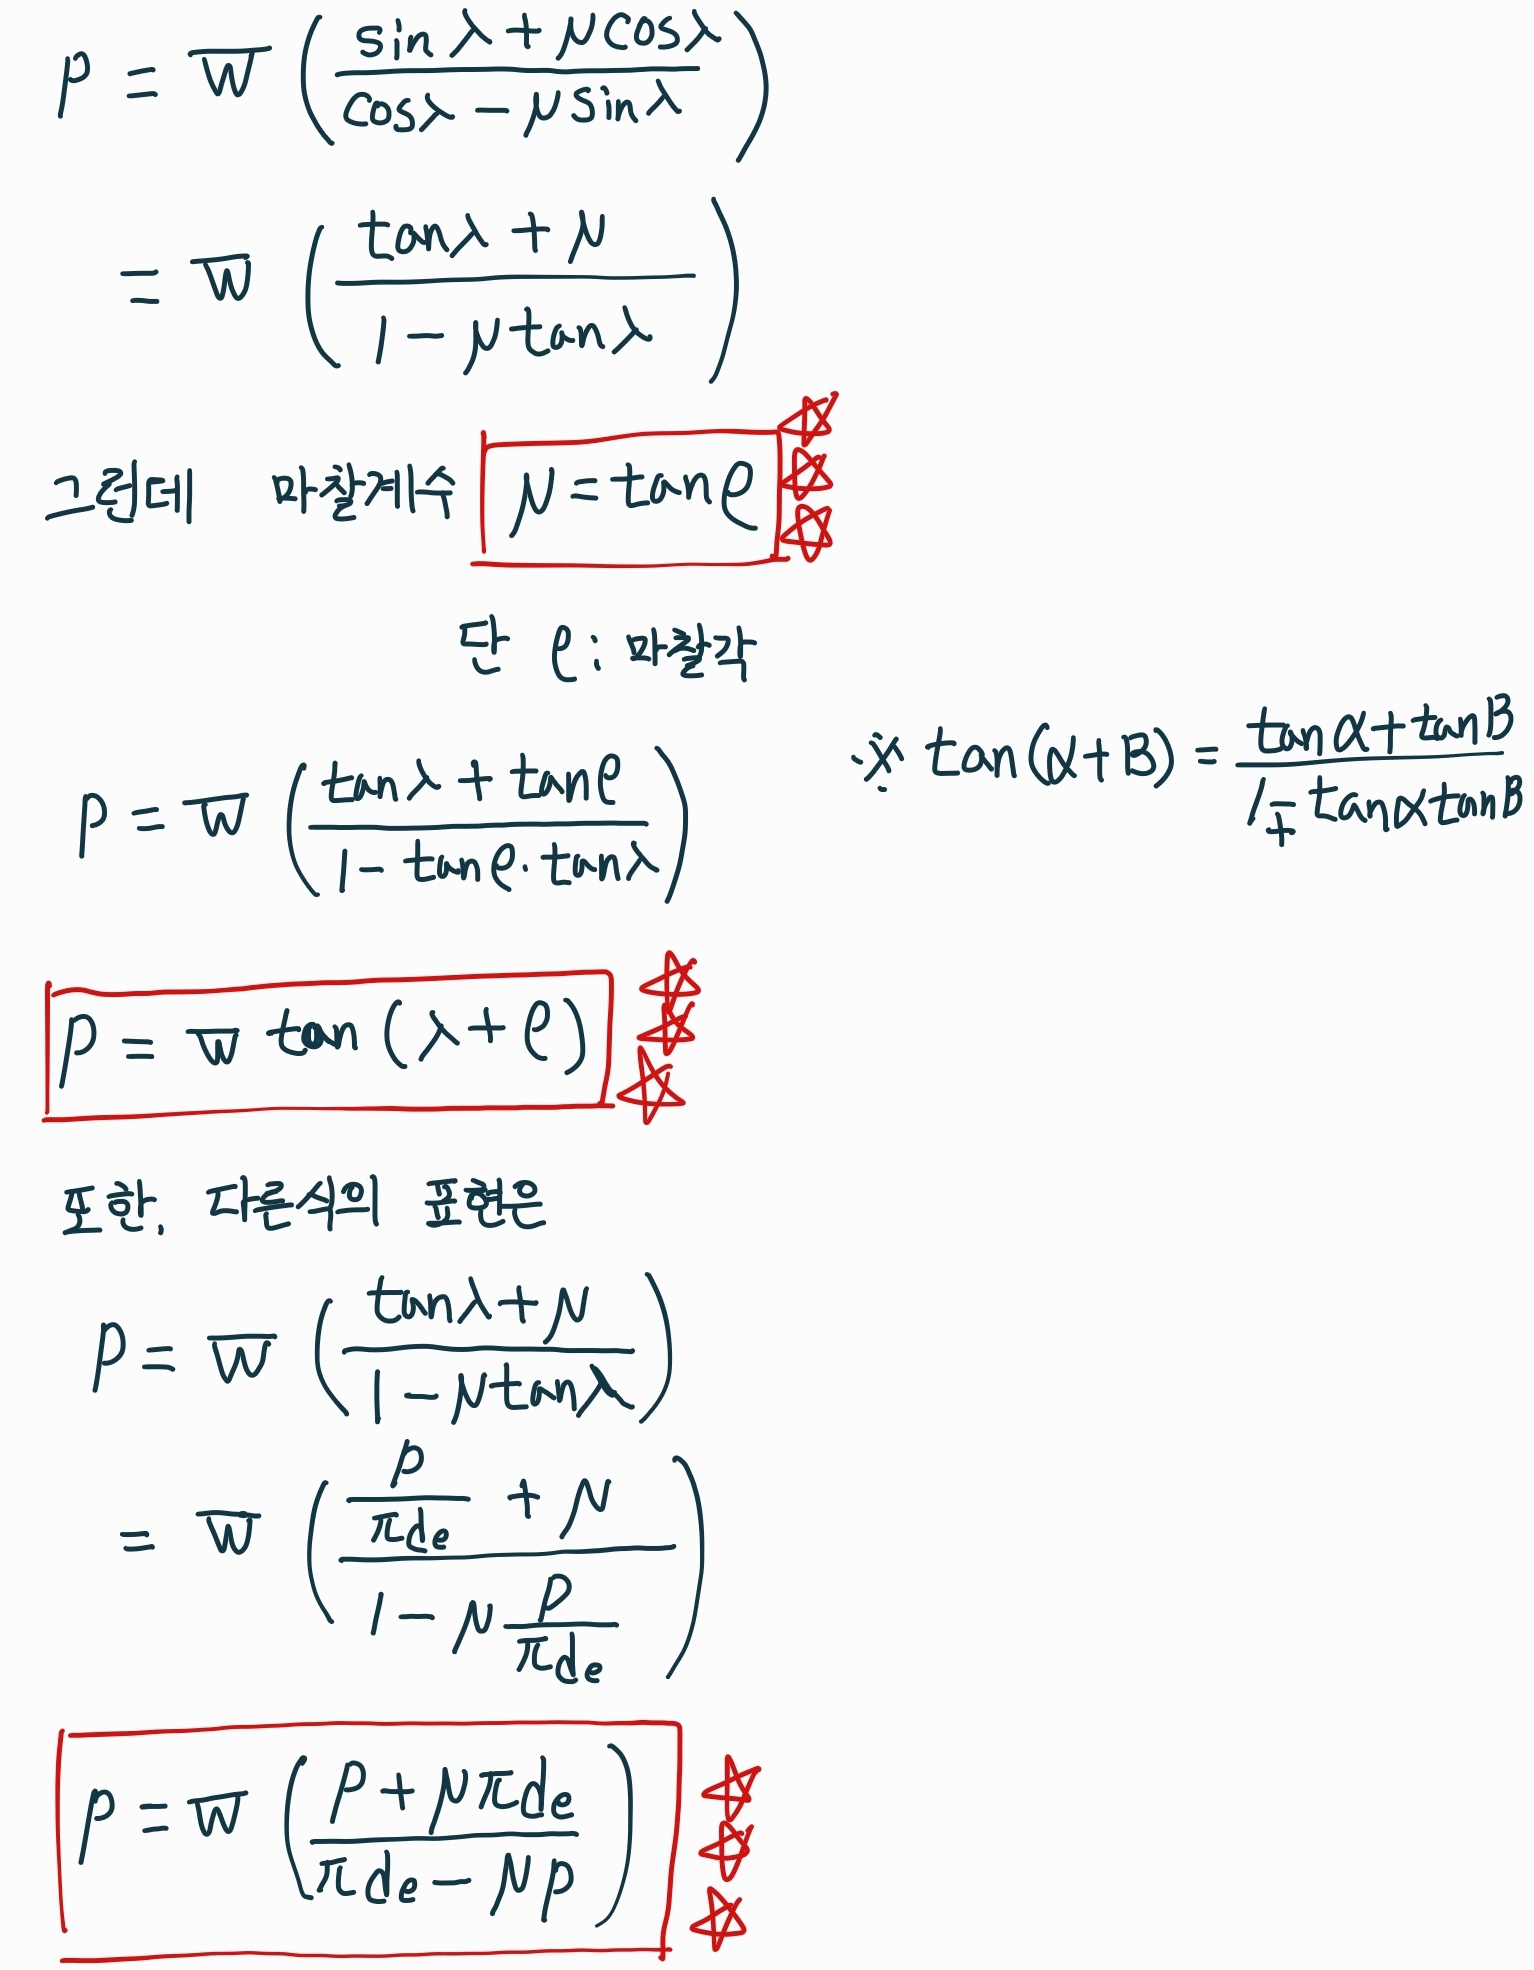 P = W ( (sin λ + μ cos λ) / (cos λ − μ sin λ) )
= W ( (tan λ + μ) / (1 − μ tan λ) )
그런데 마찰계수 μ = tan ρ
단 ρ : 마찰각
※ tan(α + B) = (tan α + tan B) / (1 ∓ tan α tan B)
P = W ( (tan λ + tan ρ) / (1 − tan ρ · tan λ) )
P = W tan (λ + ρ)
또한. 다른식의 표현은
P = W ( (tan λ + μ) / (1 − μ tan λ) )
= W ( (p/πde + μ) / (1 − μ p/πde) )
P = W ( (p + μπde) / (πde − μp) )